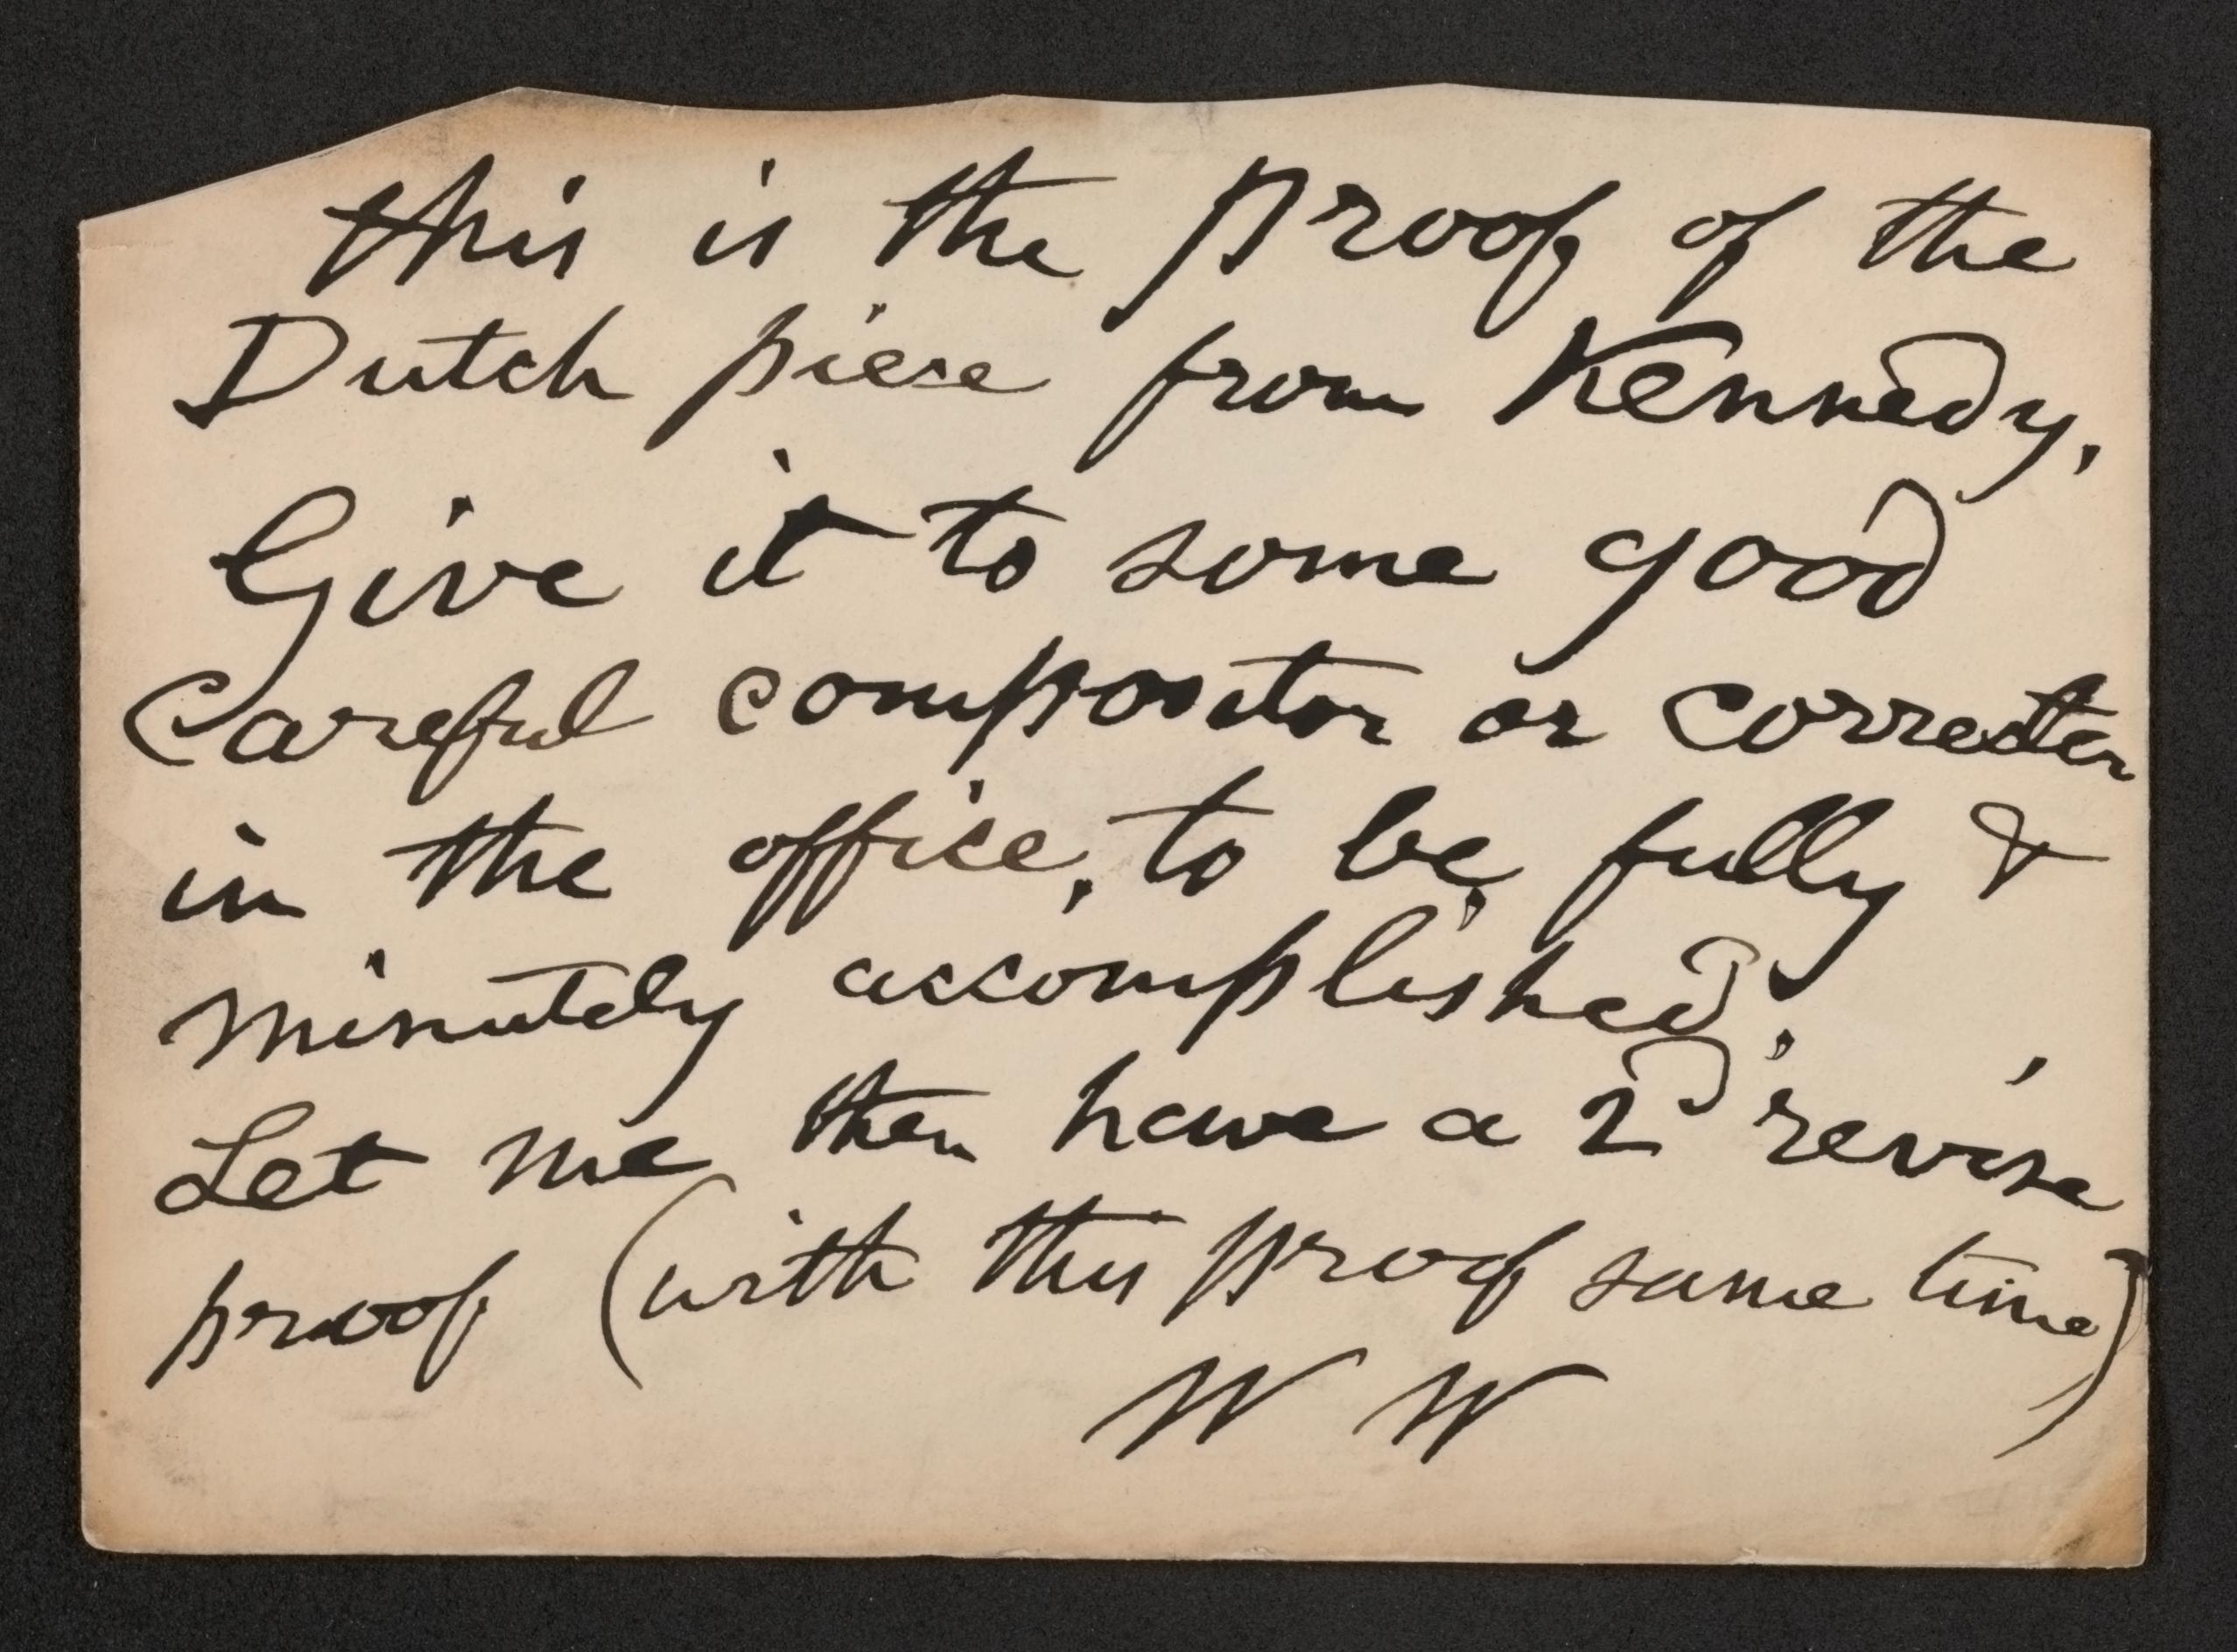 this is the proof of the
Dutch piece from Kennedy,
Give it to some good
careful compositor or correcter
in the office, to be fully &
minutely accomplished;
Let me then have a 2d revise
proof (with this proof same time)
W W